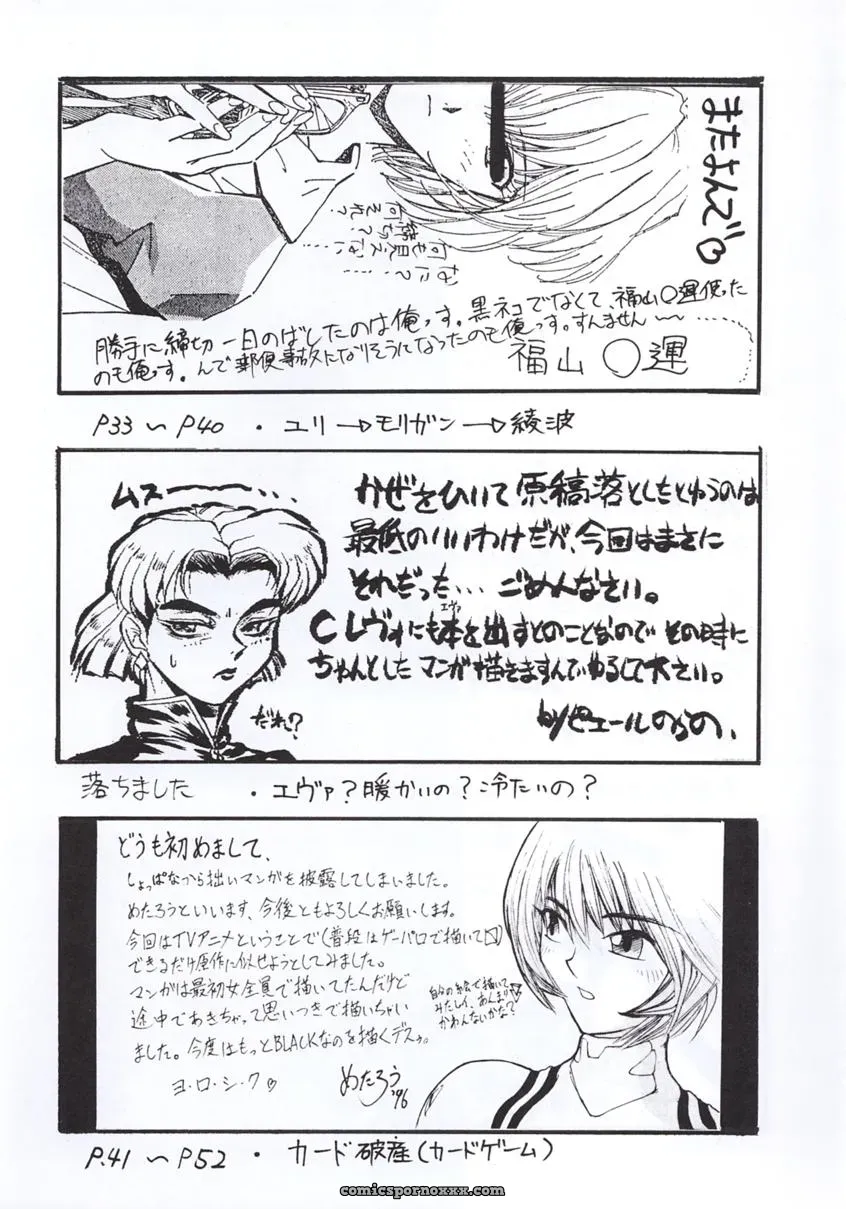 またよんで♡
何それ?
落ち?
何も見えない……
なに?……
勝手に締切一日のばしたのは俺っす。黒ネコでなくて、福山○運使った
のも俺っす。んで郵便事故になりそうになったのも俺っす。すんません〜〜
福山○運
P33 〜 P40 ・ ユリ→モリガン→綾波
ムスー……
かぜをひいて原稿落としたとゆうのは
最低のいいわけだが、今回はまさに
それだった… ごめんなさい。
Cレヴォにも本を出すとのことなので その時に
エヴァ
ちゃんとしたマンガ描きますんでゆるして下さい。
だれ?
落ちました ・ エヴァ?暖かいの?冷たいの?
どうも初めまして、
しょっぱなから拙いマンガを披露してしまいました。
めたろうといいます、今後ともよろしくお願いします。
今回はTVアニメということで(普段はゲーパロで描いて
できるだけ原作に似せようとしてみました。
マンガは最初女全員で描いてたんだけど
途中であきちゃって思いつきで描いちゃい
ました。今度はもっとBLACKなのを描くデスゥ。
ヨ・ロ・シ・ク♡
自分の絵で描いて
みたしィ、あんまり
かわんないかなぁ?
めたろう
'96
P.41 〜 P52 ・ カード破産(カードゲーム)
comicspornoxxx.com